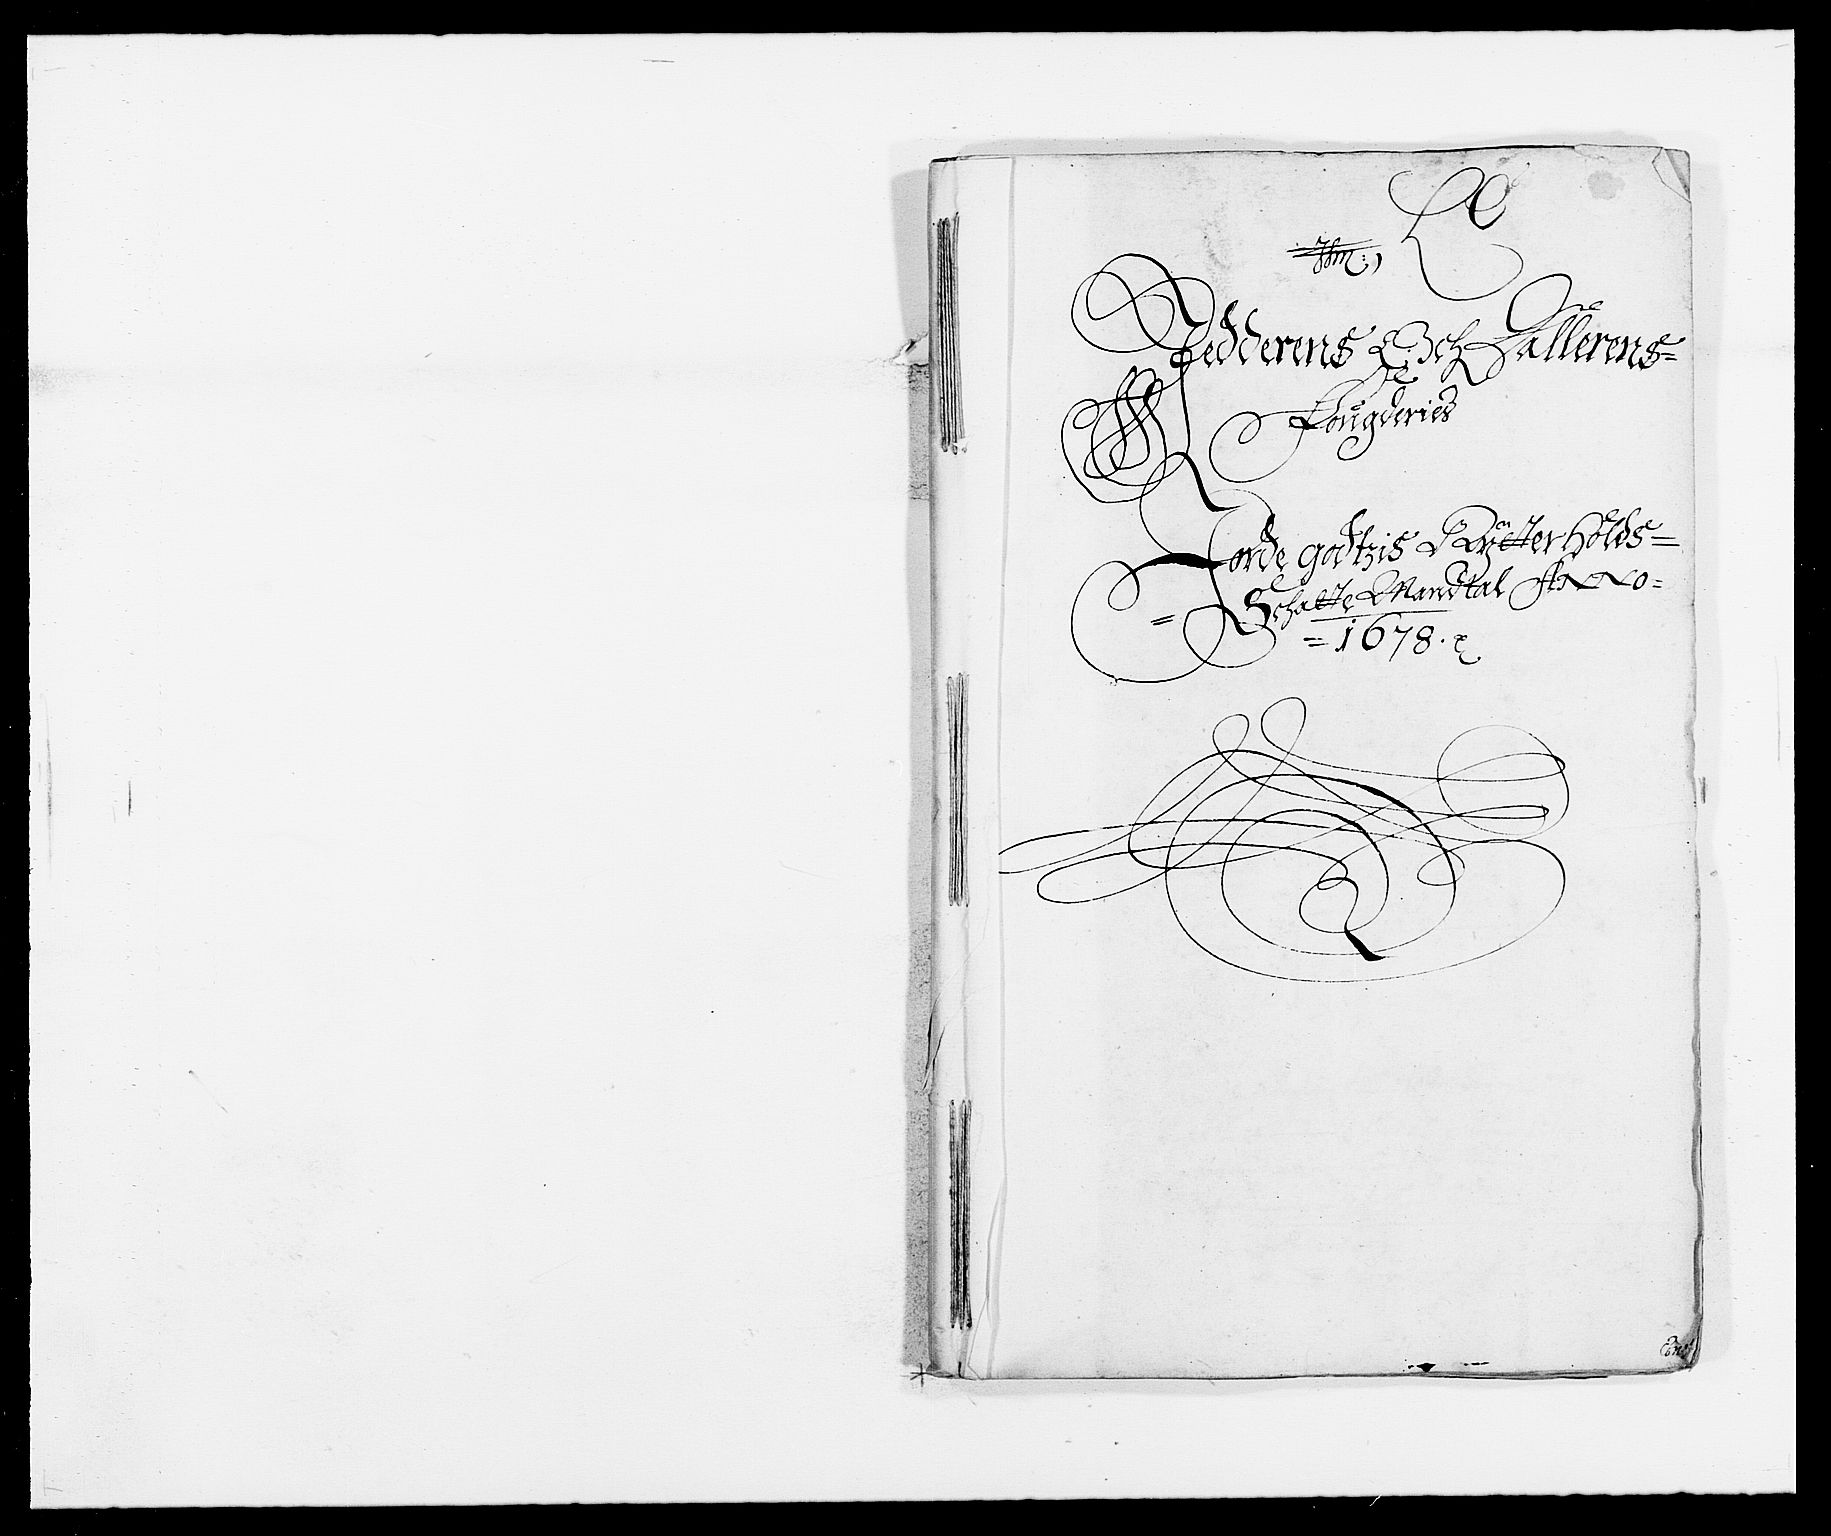 Jedderens Och Dallerens=
Fougderies
Jorde godtzis Rytterholds=
= Schatte Mandtal ANNO=
=1678.